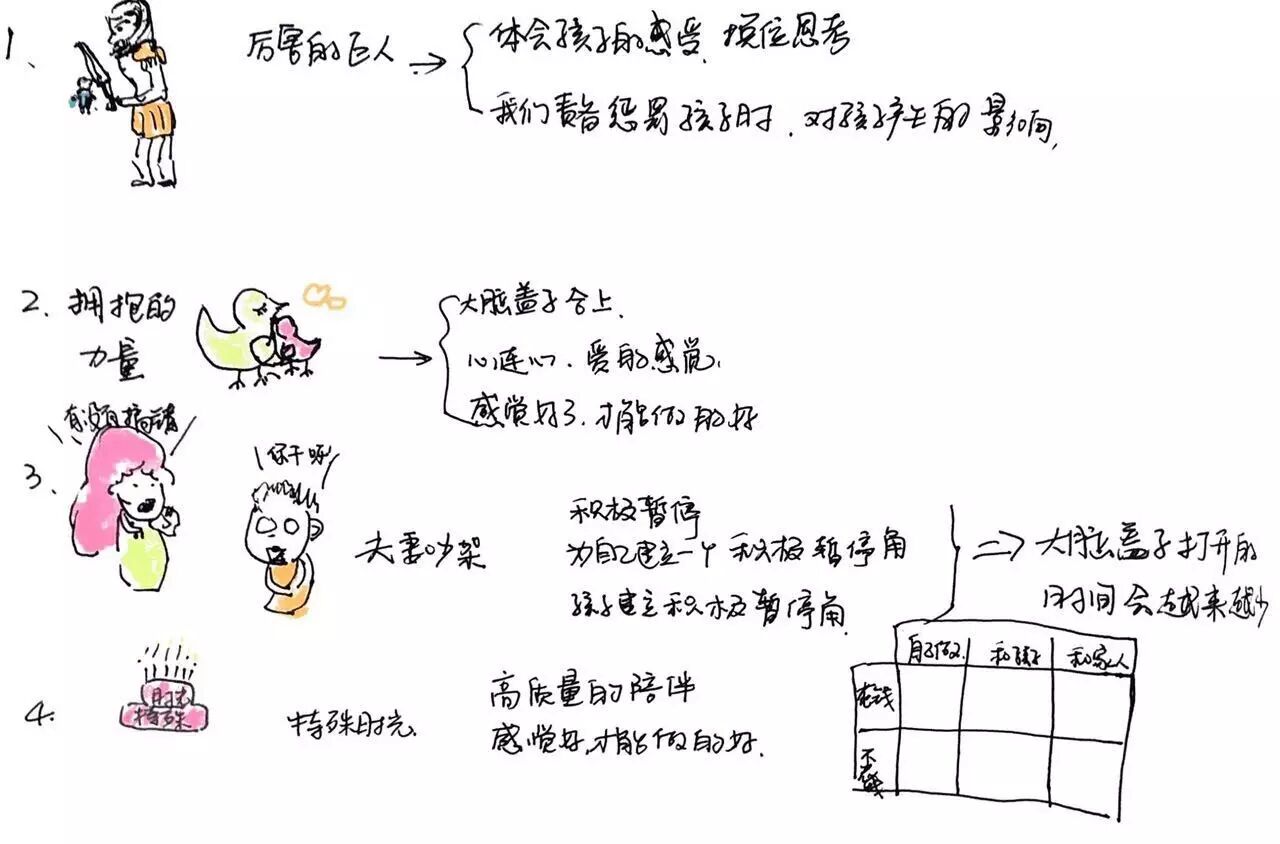 1、
厉害的巨人 → 体会孩子的感受,换位思考
我们责备惩罚孩子时、对孩子产生的影响,
2、拥抱的
力量
→ 大脑盖子合上、
心连心、爱的感觉,
感觉好了、才能做的好
有没有搞错
3、
你干呀
夫妻吵架
积极暂停
为自己建立一个积极暂停角
孩子建立积极暂停角
⇒ 大脑盖子打开的
时间会越来越少
4.
时光
特殊
特殊时光
高质量的陪伴
感觉好,才能做的好.
自己做 和孩子 和家人
花钱
不花钱